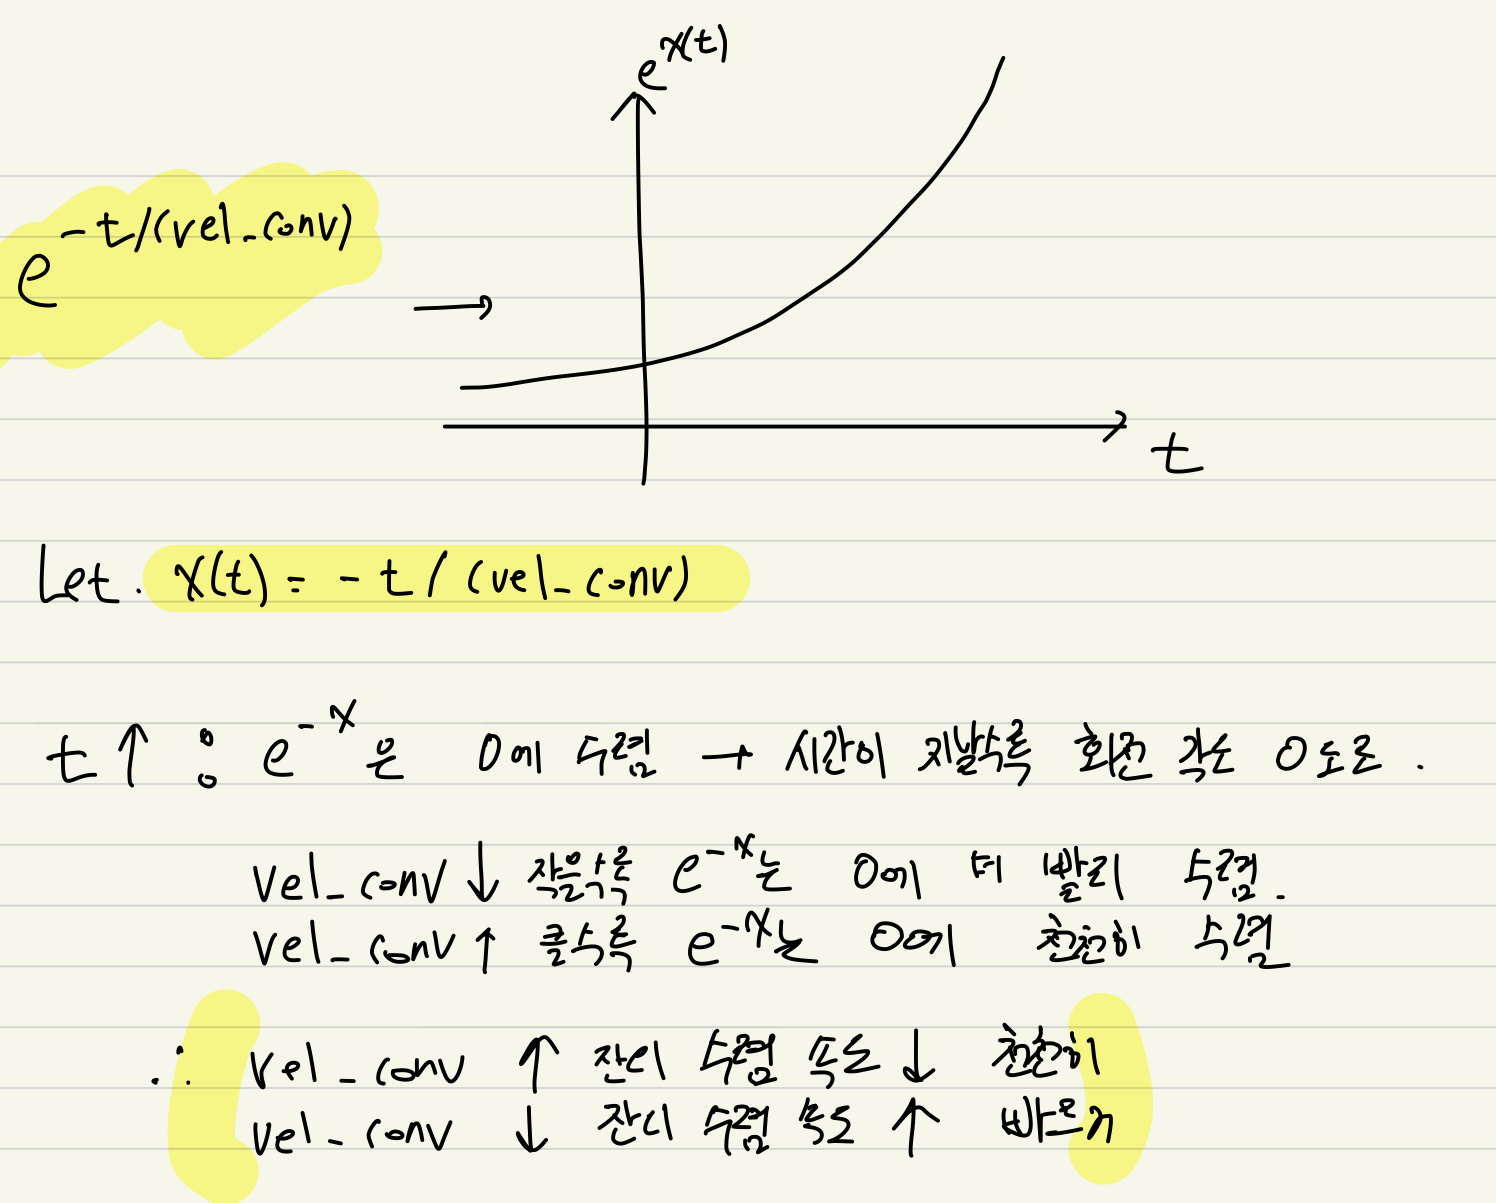 e^x(t)
e^-t/(vel_conv) →
t
Let. x(t) = - t / (vel_conv)
t ↑ : e^-x 은 0에 수렴 → 시간이 지날수록 회전 각도 0도로.
vel_conv ↓ 작을수록 e^-x는 0에 더 빨리 수렴.
vel_conv ↑ 클수록 e^-x는 0에 천천히 수렴
∴ vel_conv ↑ 잔디 수렴 속도 ↓ 천천히
vel_conv ↓ 잔디 수렴 속도 ↑ 빠르게